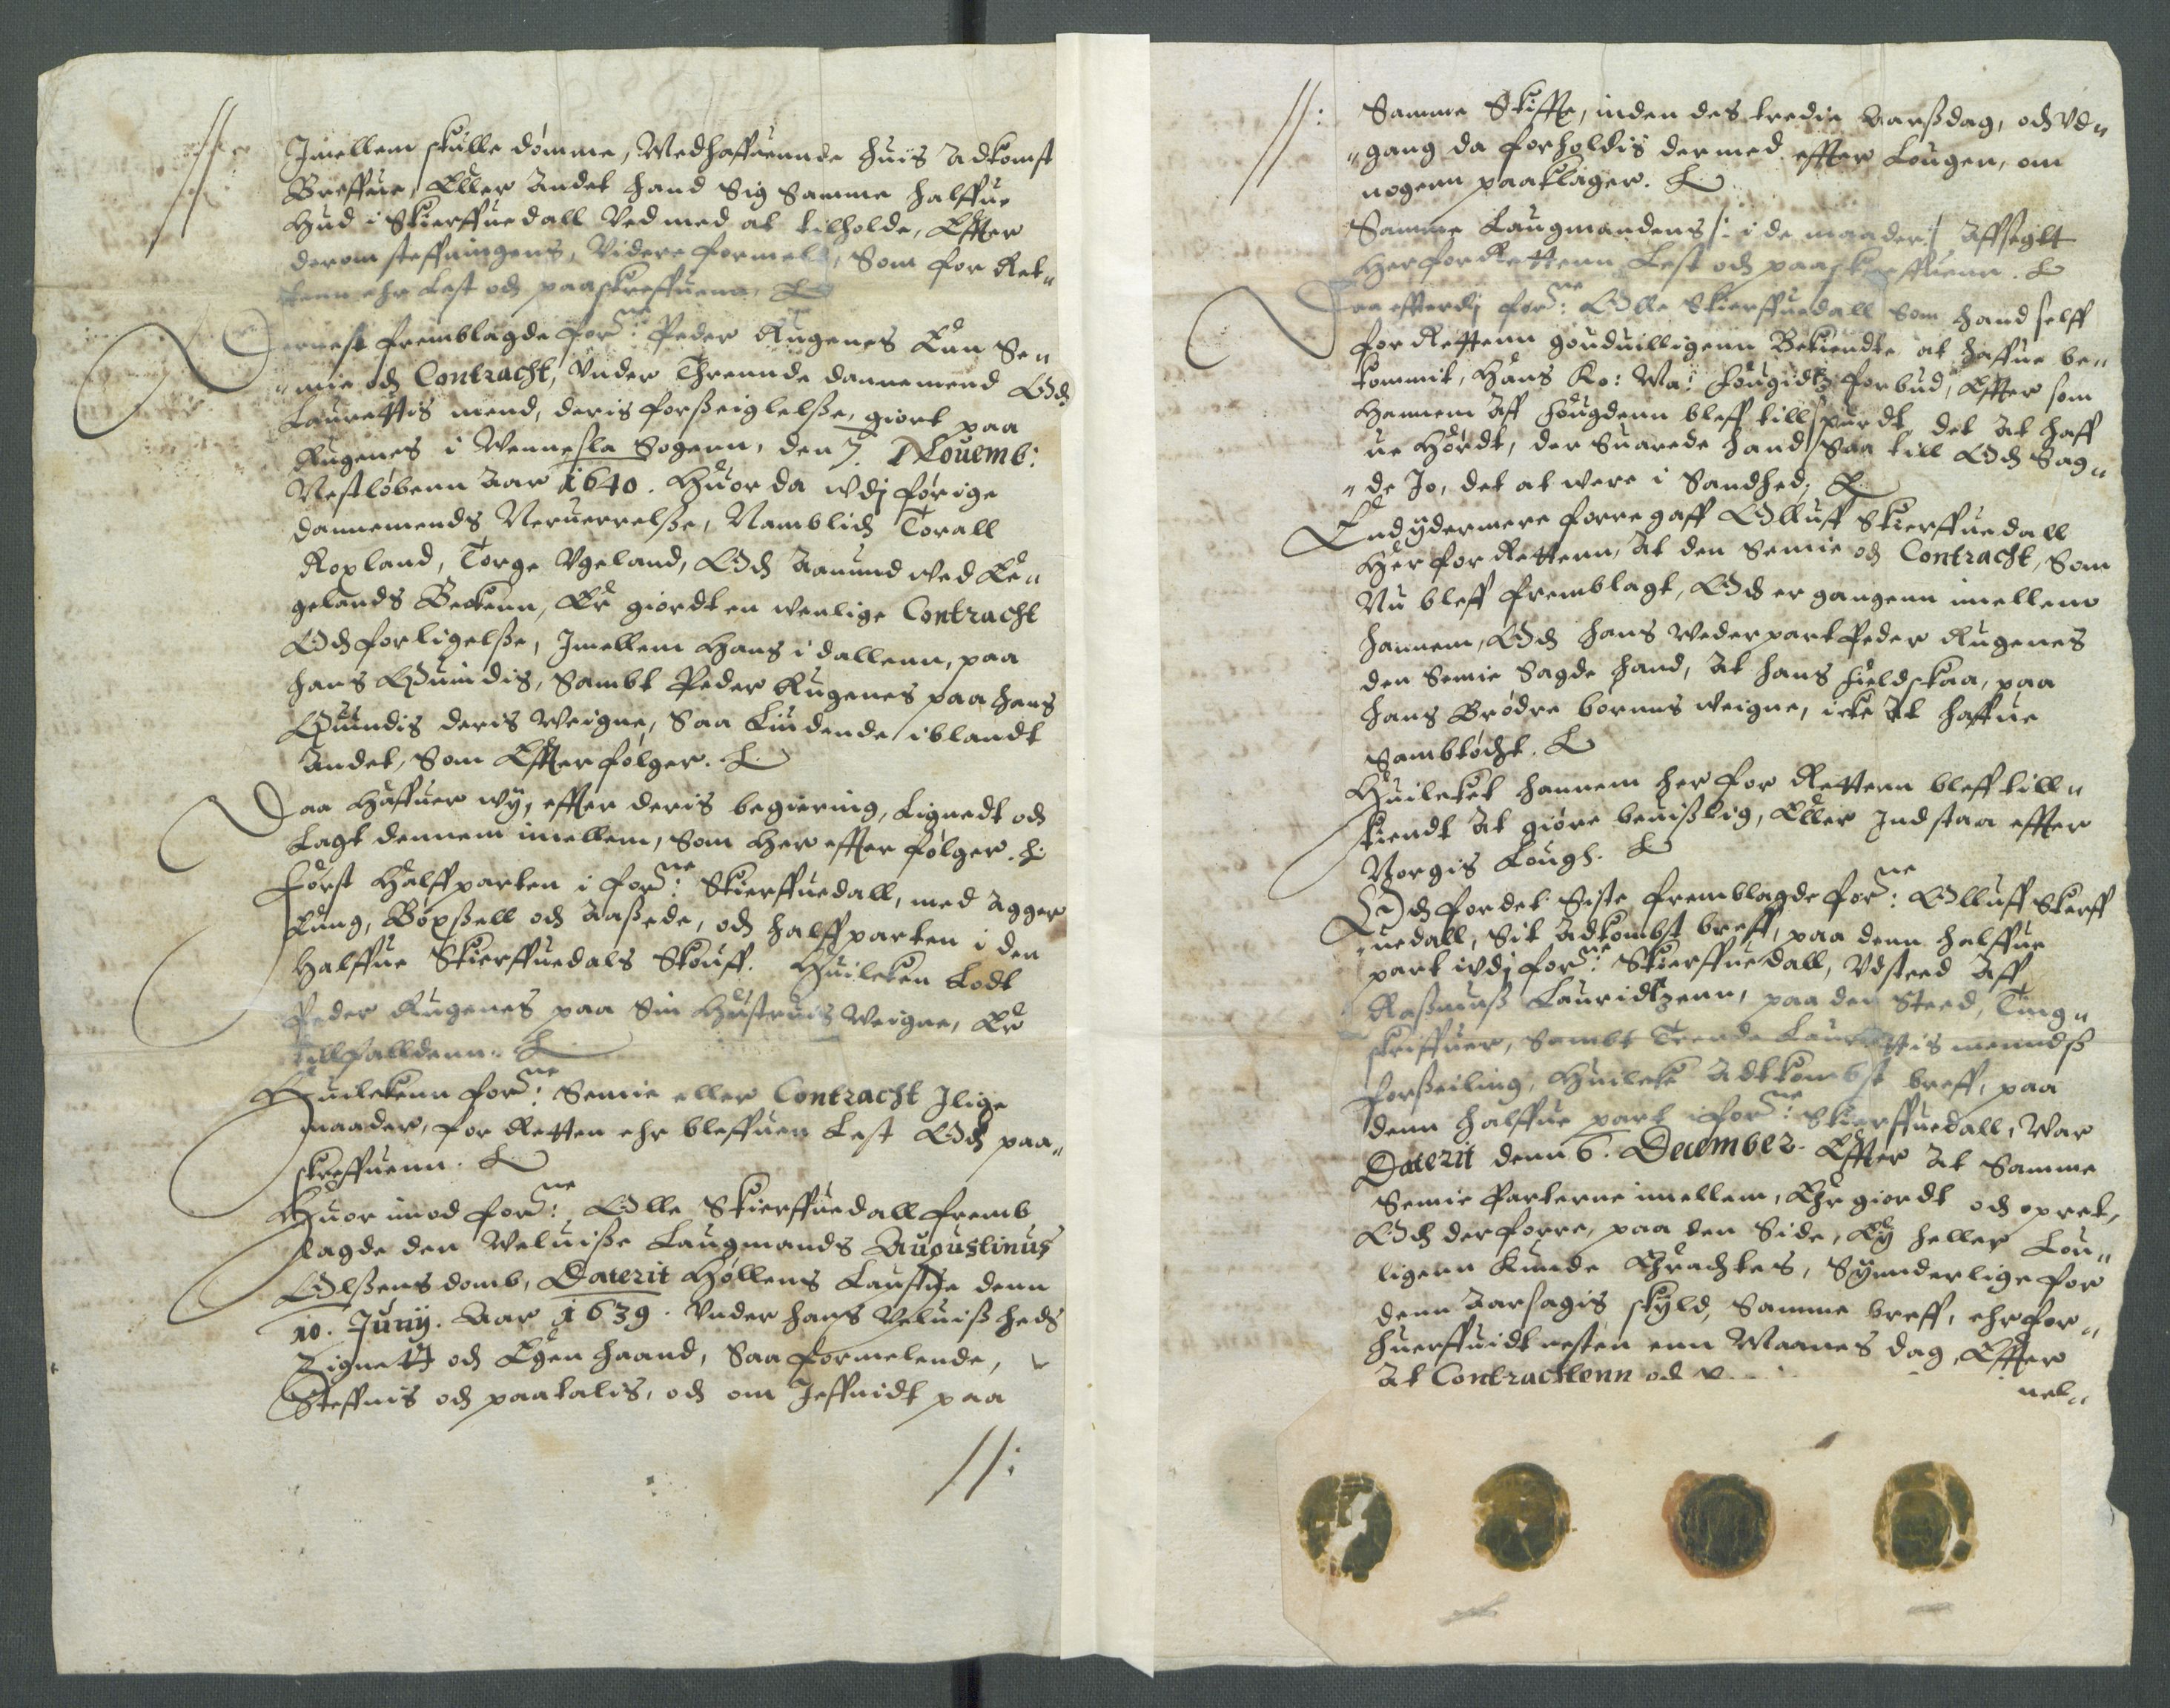 //:
Imellem skulle dömme, Medhaffuennde huis Adkomst
Breffue, Eller Andet hand Sig Samme halffue
Hud i Skierffuedall Ved med at tilholde, Effter
derom steffningens, Videre formeld, Som for Ret„
tenn ehr Lest och paaskreffuenn. &
Dernest fremblagde forne: Peder Rugenes Enn Se„
„mie och Contracht, Vnder Thrennde dannemend Och
Laurettis mend, deris forßeiglelße, giort paa
Rugenes i Wennesla Sogenn, den 7. Nouemb:
Nestlöbenn Aar 1640. Huor da udj förige
dannemends Neruerrelße, Namblich Torall
Ropland, Torge Vgeland, Och Aanund ved Ee„
gelands Beckenn, Er giordt en wenlige Contracht
Och forligelße, Imellem Hans i dallenn, paa
hans Quindis, Sambt Peder Rugenes paa hans
Quindis deris Weigne, Saa Liudende iblandt
Andet, Som Effterfölger. &
Daa Haffuer wy, effter deris begiering, Lignedt och
Lagt dennem imellem, Som her effter fölger. &
Först Halffparten i forne: Skierffuedall, med Agger
Eng, Böxßell och Aaßede, och halffparten i den
Halffue Skierffuedals Skouff. Huilcken Lodt
Peder Rugenes paa Sin Hustruis Weigne, Er
tillfalldenn. &
Huilckenn forne: Semie eller Contracht Ilige
maader, for Retten ehr bleffuen Lest Och paa„
skreffuenn. &
Huor imod forne: Olle Skierffuedall fremb
lagde den Weluiße Laugmands Augustinus
Olßens domb, Daterit Höllens Laustue denn
10. Junij. Aar 1639. Vnder hans Veluißheds
Zignett och Egen haand, Saa formelende,
Steffnis och paatalis, och om Jeffnidt paa
//:
//:
Samme Skiffte, inden des tredie Aarßdag, och Vd„
„gang da forholdis dermed effter Lougen, om
nogenn paaklager. &
Samme Laugmandens /: i de maader :/ Affsegtt
Her for Rettenn Lest och paaskreffuenn. &
Daa efterdj forne: Olle Skierffuedall Som hand self
for Rettenn gouduilligenn Bekiendte at haffue be„
kommit, Hans Ko: Ma: fougidtz forbud, Effter som
Hannem Aff fougdenn bleff tillspurdt, det At haff
ue Hördt, der Suarede hand Saa till Och Sag„
„de Jo, det at were i Sandhed. &
End ydermere forregaff Olluff Skierffuedall
Her for Rettenn, At den Semie och Contracht, Som
Nu bleff fremblagt, Och er gangenn imellem
hannem, Och hans Wederpart Peder Rugenes
den Semie Sagde hand, At hans fieldskaa, paa
hans Brödre börnns Weigne, icke At haffue
Sambtöcht. &
Huilcket hannem her for Rettenn bleff till„
kiendt At giöre beuißlig, Eller Indstaa effter
Norgis Lough. &
Och for det Siste fremblagde forne: Olluff Skerff
„uedall, Sit Adkombst breff, paa denn halffue
part udj forne: Skierffuedall, Vdsteed Aff
Raßmuß Lauridtzenn, paa den Steed, Ting„
skriffuer, Sambt Trende Laurettis menndß
forßeiling, Huilcke Adtkombst breff, paa
denn halffue part i forne: Skierffuedall, War
Daterit denn 6. December. Effter At Samme
Semie Parterne imellem, Ehr giordt och opret,
Och derforre, paa den Side, Ey heller Lou„
ligenn Kunde Ehrachtes, Synderlige for
denn Aarsagis skyld, Samme breff, ehr for„
huerffuidt nesten enn Maanes dag, Effter
At Contrachtenn och
uel„